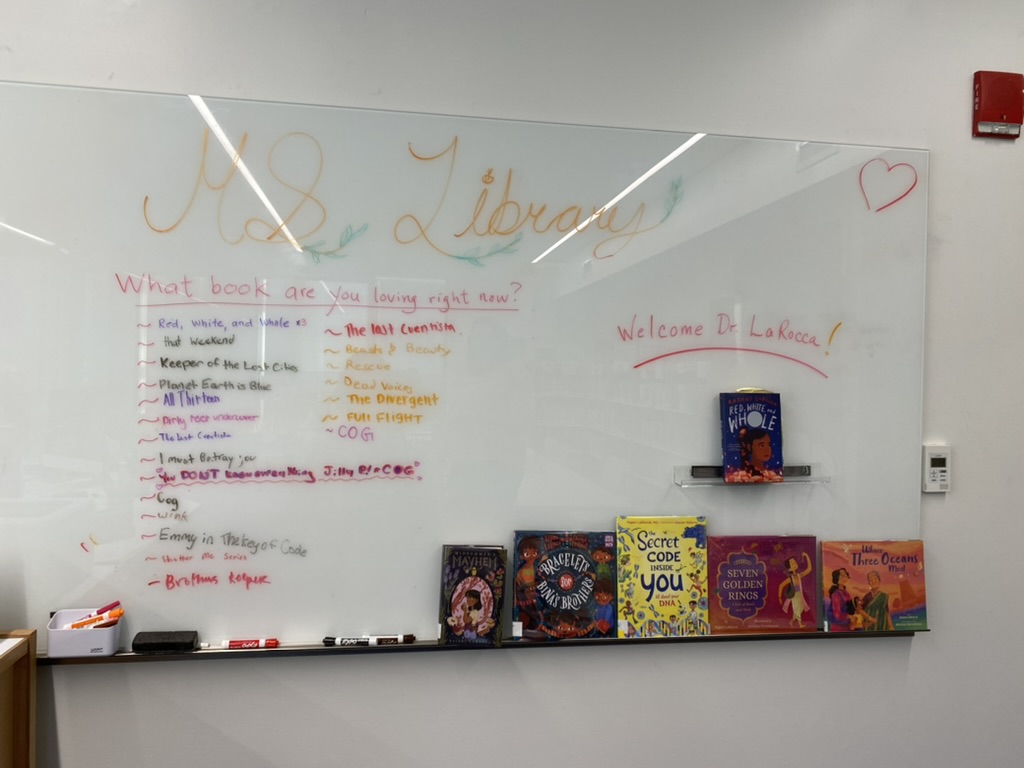 MS Library
What book are you loving right now?
~ Red, White, and Whole x3
~ that weekend
~ Keeper of the Lost Cities
~ Planet Earth is Blue
~ All Thirteen
~ Dirty
~ The last Cuentista
~ I must Betray you
~ You DON'T know everything Jilly P! * COG
~ Cog
~ Wink
~ Emmy in The Key of Code
~ Shatter Me Series
~ Brothers Keeper
~ The last Cuentista
~ Beasts & Beauty
~ Rescue
~ Dead Voices
~ The Divergent
~ FULL FLIGHT
~ COG
Welcome Dr. LaRocca!
RED, WHITE, and WHOLE
MAYHEM
BRACELETS for BINA'S BROTHERS
the Secret CODE INSIDE YOU
All about your DNA
SEVEN GOLDEN RINGS
Where Three Oceans Meet
FIRE